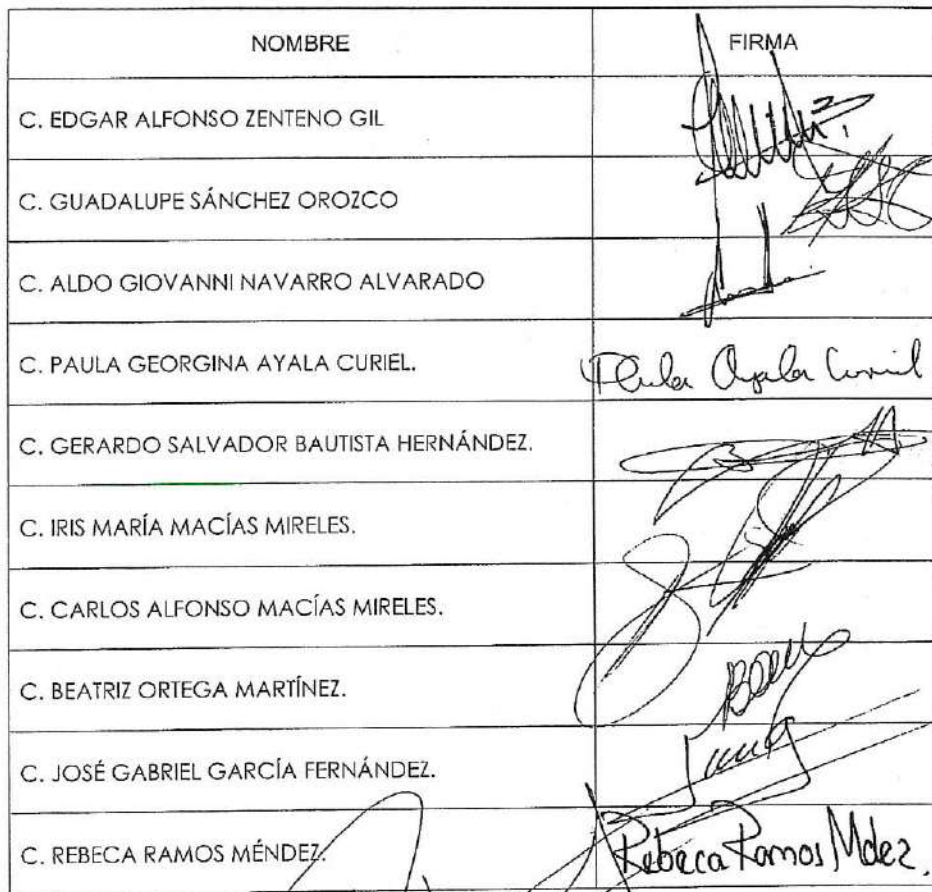 NOMBRE FIRMA
C. EDGAR ALFONSO ZENTENO GIL
C. GUADALUPE SÁNCHEZ OROZCO
C. ALDO GIOVANNI NAVARRO ALVARADO
C. PAULA GEORGINA AYALA CURIEL. Paula Ayala Curiel
C. GERARDO SALVADOR BAUTISTA HERNÁNDEZ.
C. IRIS MARÍA MACÍAS MIRELES.
C. CARLOS ALFONSO MACÍAS MIRELES.
C. BEATRIZ ORTEGA MARTÍNEZ.
C. JOSÉ GABRIEL GARCÍA FERNÁNDEZ.
C. REBECA RAMOS MÉNDEZ. Rebeca Ramos Mdez.